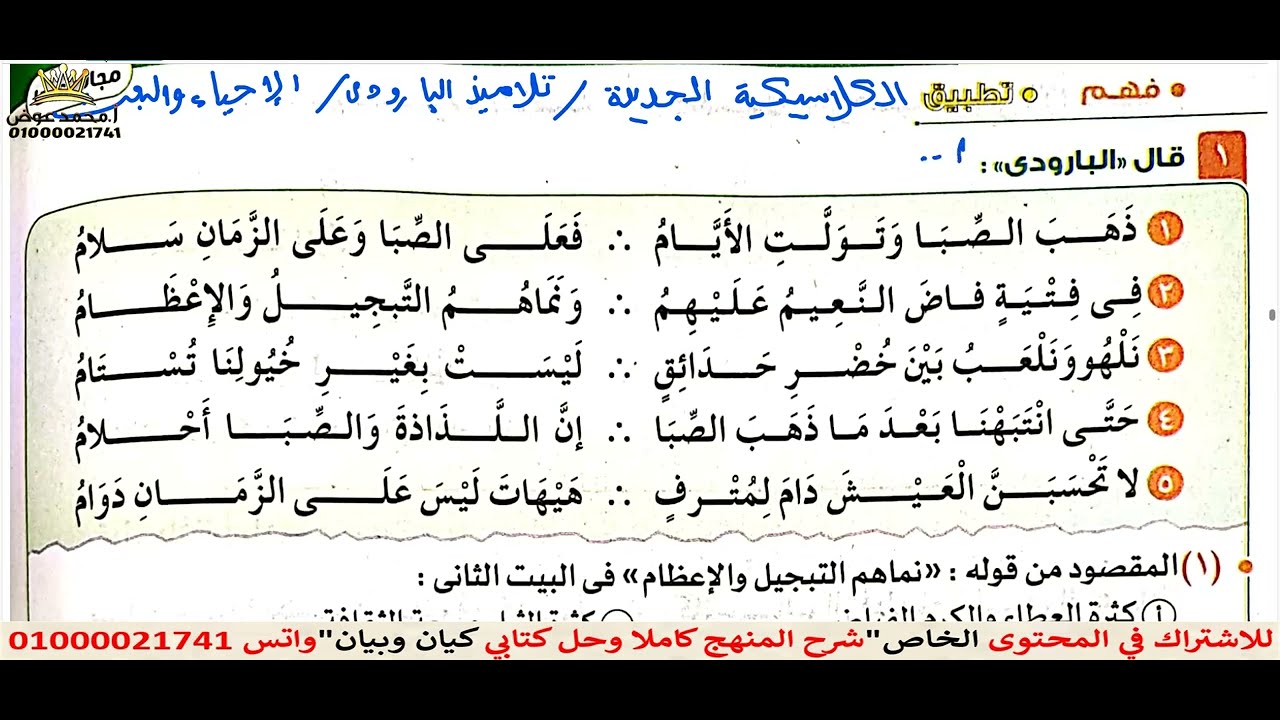 مجا
أ.محمد عوض
01000021741
• فهم • تطبيق الكلاسيكية الجديدة / تلاميذ البارودى / الإحياء والبعث
١ قال «البارودى»: م ..
١ ذَهَبَ الصِّبَا وَتَوَلَّتِ الأَيَّامُ ∴ فَعَلَى الصِّبَا وَعَلَى الزَّمَانِ سَلامُ
٢ فِى فِتْيَةٍ فاضَ النَّعِيمُ عَلَيْهِمُ ∴ وَنَمَاهُمُ التَّبجِيلُ وَالإِعْظَامُ
٣ نَلْهُو وَنَلْعَبُ بَيْنَ خُضْرِ حَدَائِقٍ ∴ لَيْسَتْ بِغَيْرِ خُيُولِنَا تُسْتَامُ
٤ حَتَّى انْتَبَهْنَا بَعْدَ مَا ذَهَبَ الصِّبَا ∴ إنَّ اللَّذَاذةَ وَالصِّبَا أَحْلامُ
٥ لا تَحْسَبَنَّ الْعَيْشَ دَامَ لِمُتْرفٍ ∴ هَيْهَاتَ لَيْسَ عَلَى الزَّمَانِ دَوَامُ
• (١) المقصود من قوله : «نماهم التبجيل والإعظام» فى البيت الثانى :
أ كثرة العطاء والكرم الفياض
للاشتراك في المحتوى الخاص"شرح المنهج كاملا وحل كتابي كيان وبيان"واتس 01000021741